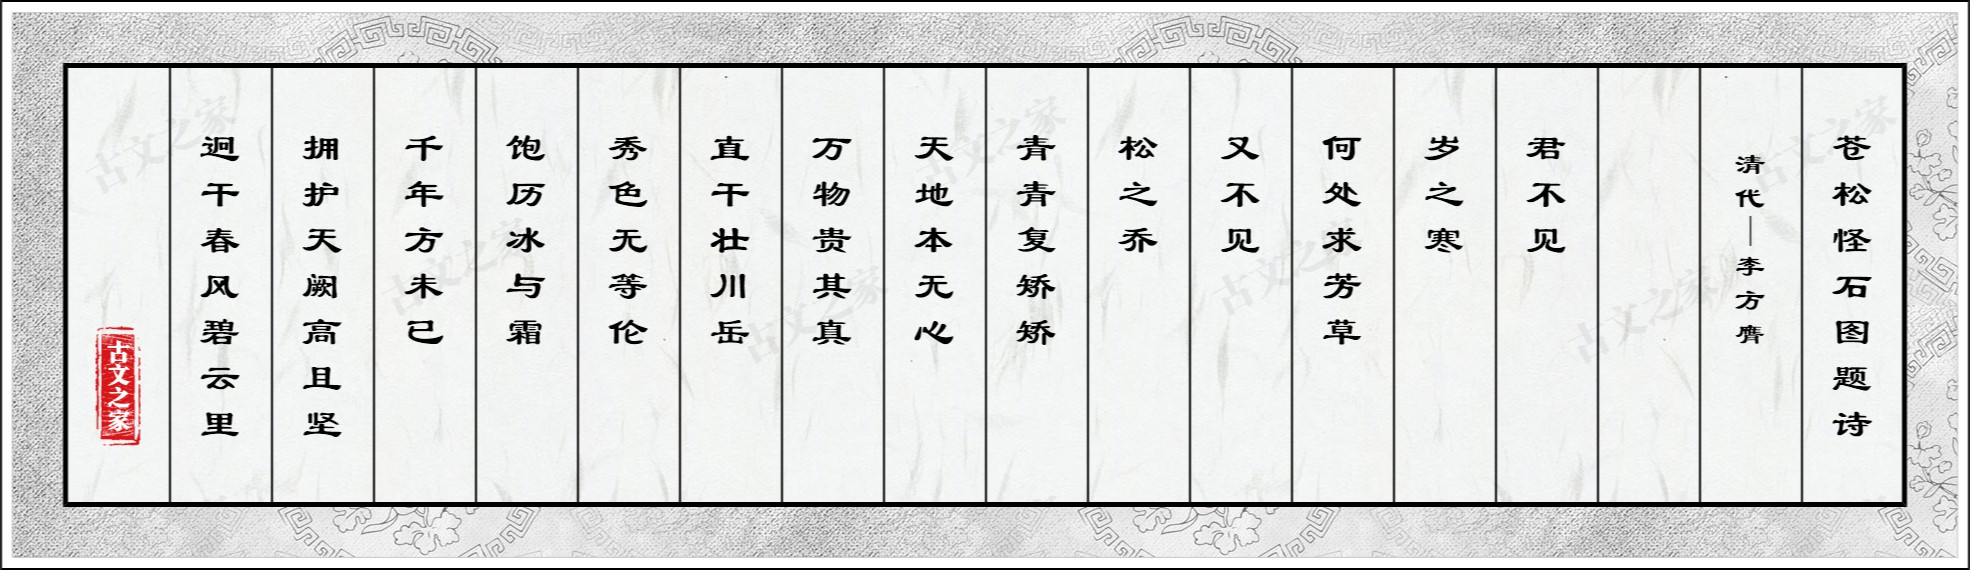 苍松怪石图题诗
清代—李方膺
君不见
岁之寒
何处求芳草
又不见
松之乔
青青复矫矫
天地本无心
万物贵其真
直干壮川岳
秀色无等伦
饱历冰与霜
千年方未已
拥护天阙高且坚
迥干春风碧云里
古文之家